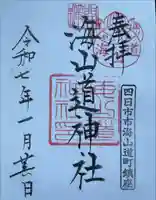 奉拝
四日市市海山道町鎮座
海山道神社
令和七年一月廿日